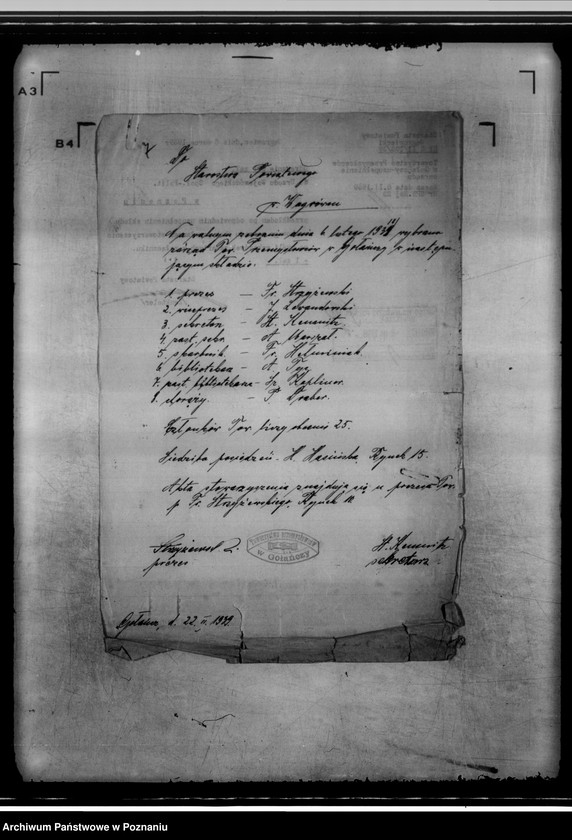 A3
B4
Do
Starostwa Powiatowego
w Wągrowcu
Na walnem zebraniu dnia 6 lutego 1939 wybrano
zarząd Tow. Przemysłowców w Gołańczy w następu-
jącym składzie:
1. prezes — Fr. Strzyżewski
2. viceprezes — J. Lewandowski
3. sekretarz — St. Kemnitz
4. zast. sekr. — A.
5. skarbnik — Fr.
6. bibliotekarz — A. Tyc
7. zast. bibliotekarza —
8. — P. Draber.
Członków Tow. liczy obecnie 25.
Siedziba posiedzeń. H. Rynek 15.
Akta stowarzyszenia znajdują się u prezesa Tow.
p. Fr. Strzyżewskiego, Rynek 12
prezes
w Gołańczy
St. Kemnitz
sekretarz
Gołańcz, d. 22. II. 1939.
Archiwum Państwowe w Poznaniu